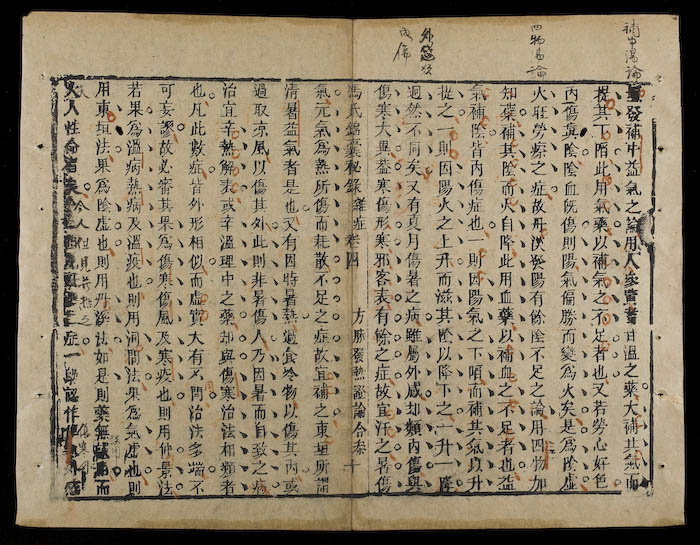 補中湯論
四物湯論
外感
內傷
發補中益氣之論用人參黃耆甘溫之藥大補其氣而
提其下陷此用氣藥以補氣之不足者也又若勞心好色
內傷眞陰陰血旣傷則陽氣偏勝而變爲火矣是爲陰虛
火旺勞瘵之症故丹溪發陽有餘陰不足之論用四物加
知蘗補其陰而火自降此用血藥以補血之不足者也益
氣補陰皆內傷症也一則因陽氣之下陷而補其氣以升
提之一則因陽火之上升而滋其陰以降下之一升一降
迥然不同矣又有夏月傷暑之病雖屬外感却類內傷與
傷寒大異蓋寒傷形寒邪客表有餘之症故宜汗之暑傷
馮氏錦囊秘錄雜症卷四 方脉發熱證論合參 十
氣元氣爲熱所傷而耗散不足之症故宜補之東垣所謂
清暑益氣者是也又有因時暑熱過食冷物以傷其內或
過取凉風以傷其外此則非暑傷人乃因暑而自致之病
治宜辛熱解表或辛溫理中之藥却與傷寒治法相類者
也凡此數症皆外形相似而虛實大有不同治法多端不
可妄謬故必審其果爲傷寒傷風及寒疫也則用仲景法
若果爲溫病熱病及溫疫也則用河間法果爲氣虛也則
用東垣法果爲陰虛也則用丹溪法如是則藥無而
今人但見